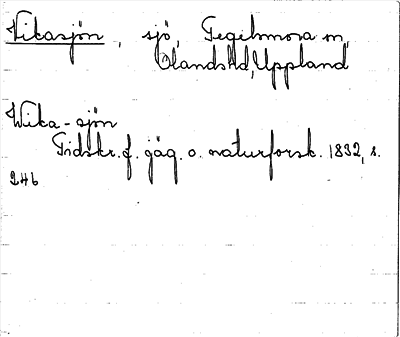 Vikasjön, sjö, Tegelsmora sn,
Olands hd, Uppland
Wika-sjön
Tidskr. f. jäg. o. naturforsk. 1832, s.
246